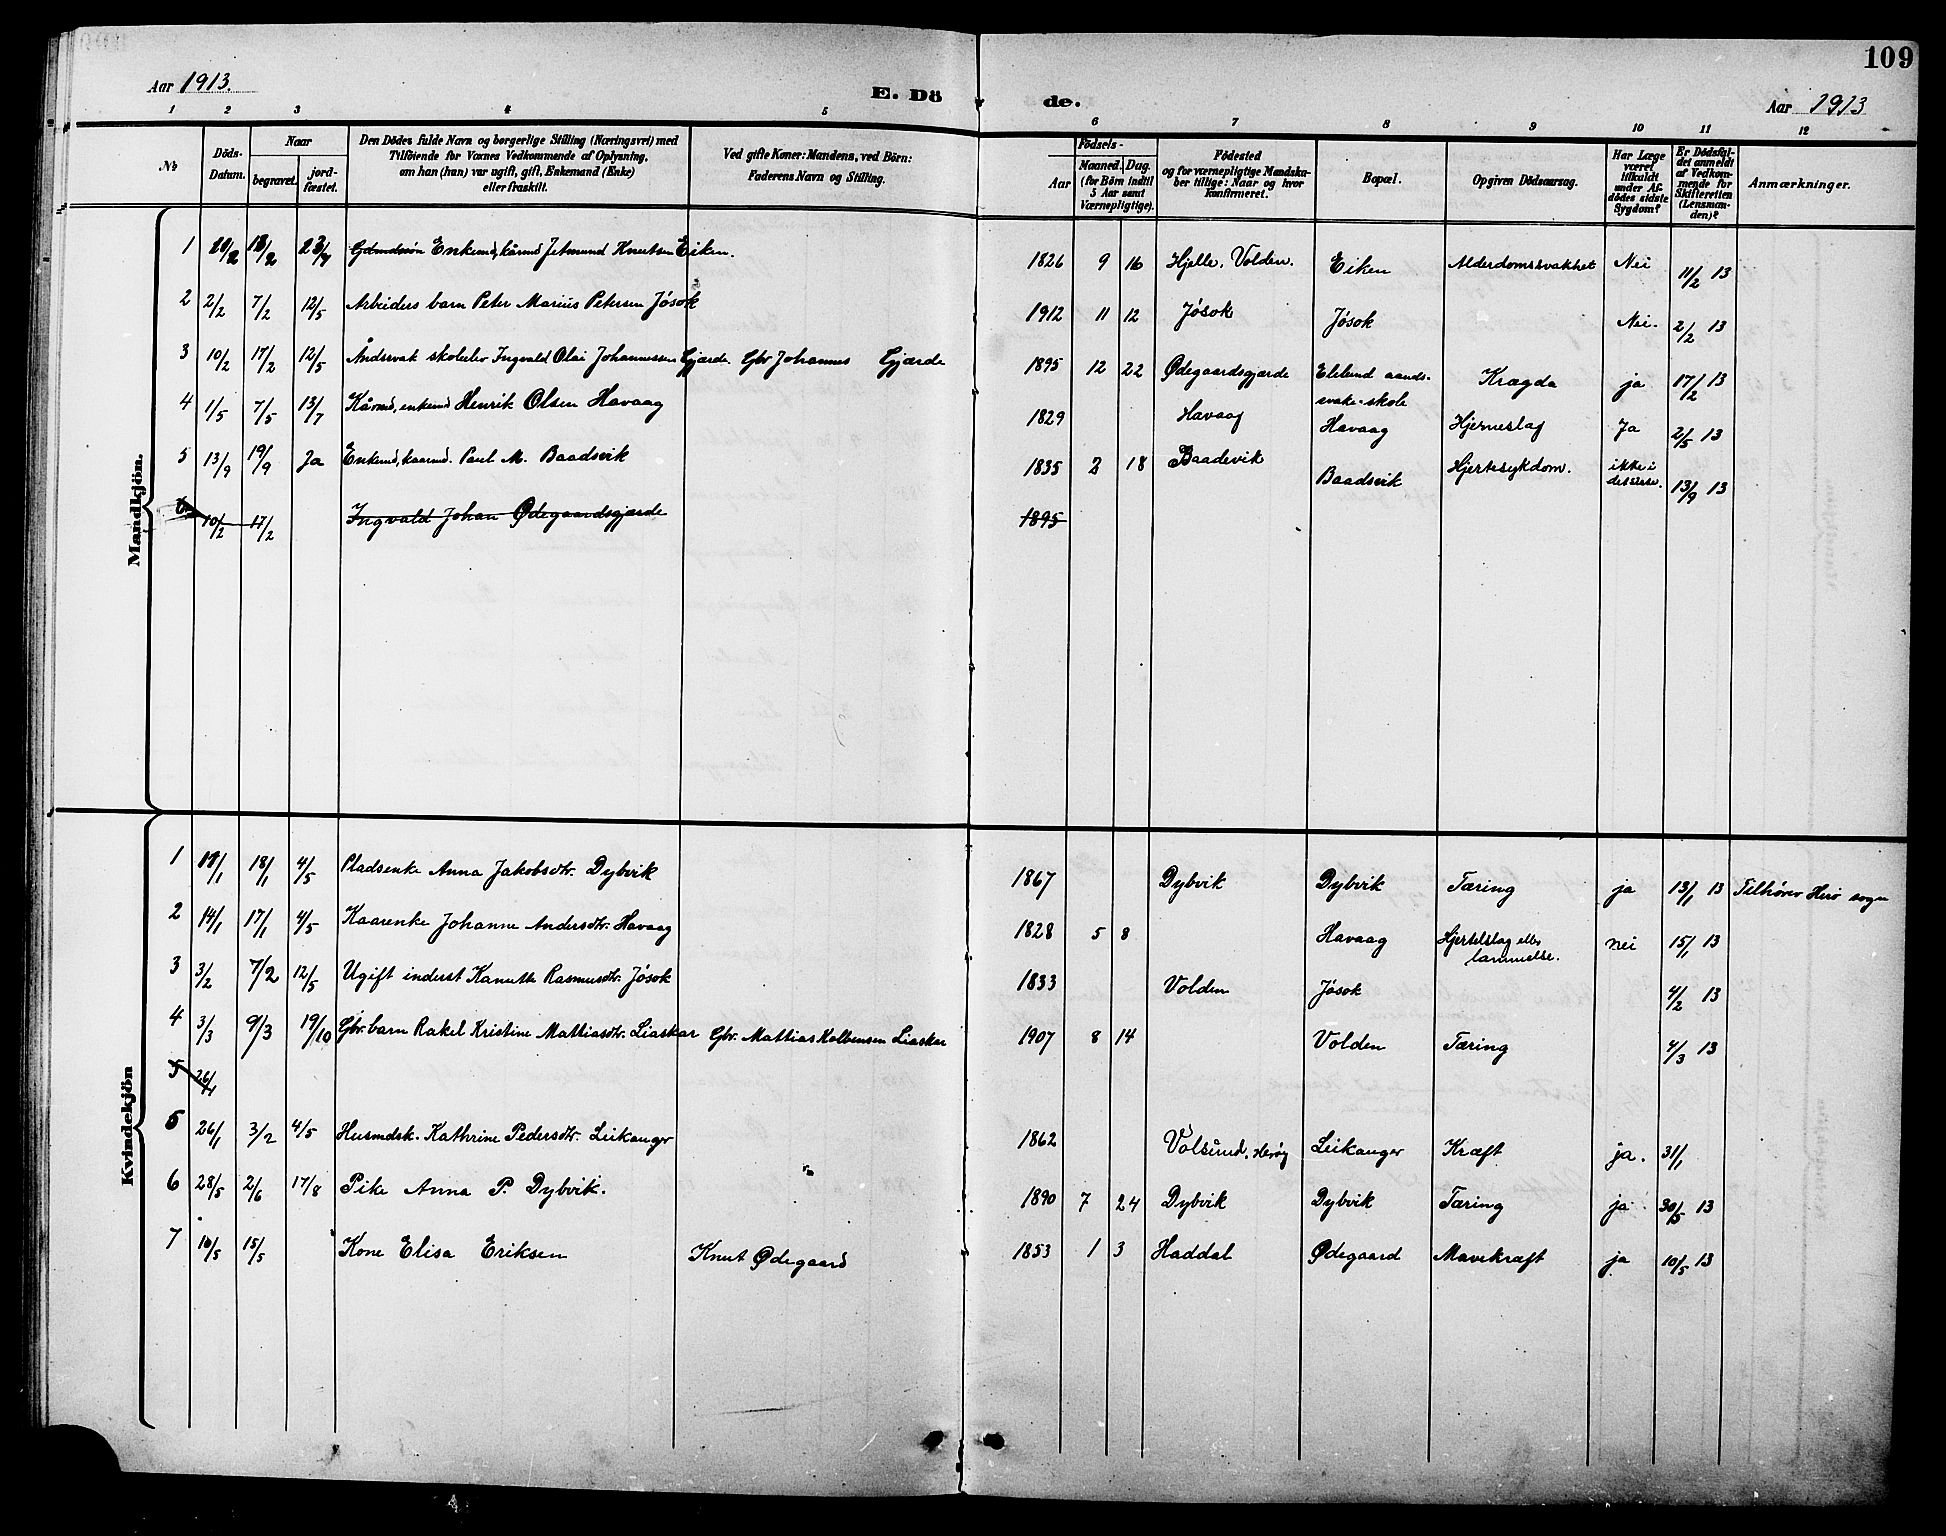 109
Aar 1913.
E. Döde.
Aar 1913
1 2 3 4 5 6 7 8 9 10 11 12
No
Döds-Datum.
Naar
begravet.
jord-fæstet.
Den Dödes fulde Navn og borgerlige Stilling (Næringsvei) med
Tilföiende for Voxnes Vedkommende af Oplysning,
om han (hun) var ugift, gift, Enkemand (Enke)
eller fraskilt.
Ved gifte Koner: Mandens, ved Börn:
Faderens Navn og Stilling.
Födsels-
Aar
Maaned. Dag.
(for Börn indtil
5 Aar samt
Værnepligtige).
Födested
og for værnepligtige Mandska-
ber tillige: Naar og hvor
konfirmeret.
Bopæl.
Opgiven Dödsaarsag.
Har Læge
været
tilkaldt
under Af-
dödes sidste
Sygdom?
Er Dödsfal-
det anmeldt
af Vedkom-
mende for
Skifteretten
(Lensman-
den)?
Anmærkninger.
Mandkjön.
1 /2 /2 Enkemd, kårmd Jetmund Knutsen Eiken. 1826 9 16 Hjelle, Volden. Eiken Alderdomssvakhet Nei 11/2 13
2 2/2 7/2 12/5 Arbeiders barn Peter Marius Petersen Jøsok 1912 11 12 Jøsok Jøsok Nei. 2/2 13
3 10/2 17/2 12/5 Åndssvak skoleelev Ingvald Olai Johannessen Gjærde Gbr Johannes Gjærde 1895 12 22 Ødegaardsgjærde aands-
svake-skole Krægda ja 17/2 13
4 1/5 7/5 13/7 Kårmd, enkemd Henrik Olsen Havaag 1829 Havaag Havaag Hjerneslag Ja 2/5 13
5 13/9 19/9 Ja Enkemd, kaarmd. Paul M. Baadsvik 1835 2 18 Baadsvik Baadsvik Hjertesykdom. ikke i
13/9 13
6 10/2 17/2 Ingvald Johan Ødegaardsgjærde 1895
Kvindekjön
1 11/1 18/1 4/5 Pladsenke Anna Jakobsdtr. Dybvik 1867 Dybvik Dybvik Tæring ja 13/1 13 Tilhører Herø sogn
2 14/1 17/1 4/5 Kaarenke Johanne Andersdtr. Havaag 1828 5 8 Havaag Hjertelslag eller
lammelse. nei 15/1 13
3 3/2 7/2 12/5 Ugift inderst Kanutte Rasmusdtr. Jøsok 1833 Volden Jøsok 4/2 13
4 3/3 9/3 19/10 Gbr. barn Rakel Kristine Mathiasdtr. Liaskar Gbr. Mattias Kolbensen Liaskar 1907 8 14 Volden Tæring 4/3 13
5 26/1
5 26/1 3/2 4/5 Husmdsk. Kathrine Pedersdtr. Leikanger 1862 Volsund, Herøy Leikanger Kræft ja. 31/1
6 28/5 2/6 17/8 Pike Anna P. Dybvik. 1890 7 24 Dybvik Dybvik Tæring ja 30/5 13
7 10/5 15/5 Kone Elisa Eriksen Knut Ødegaard 1853 1 3 Haddal Ødegaard Mavekræft ja 10/5 13